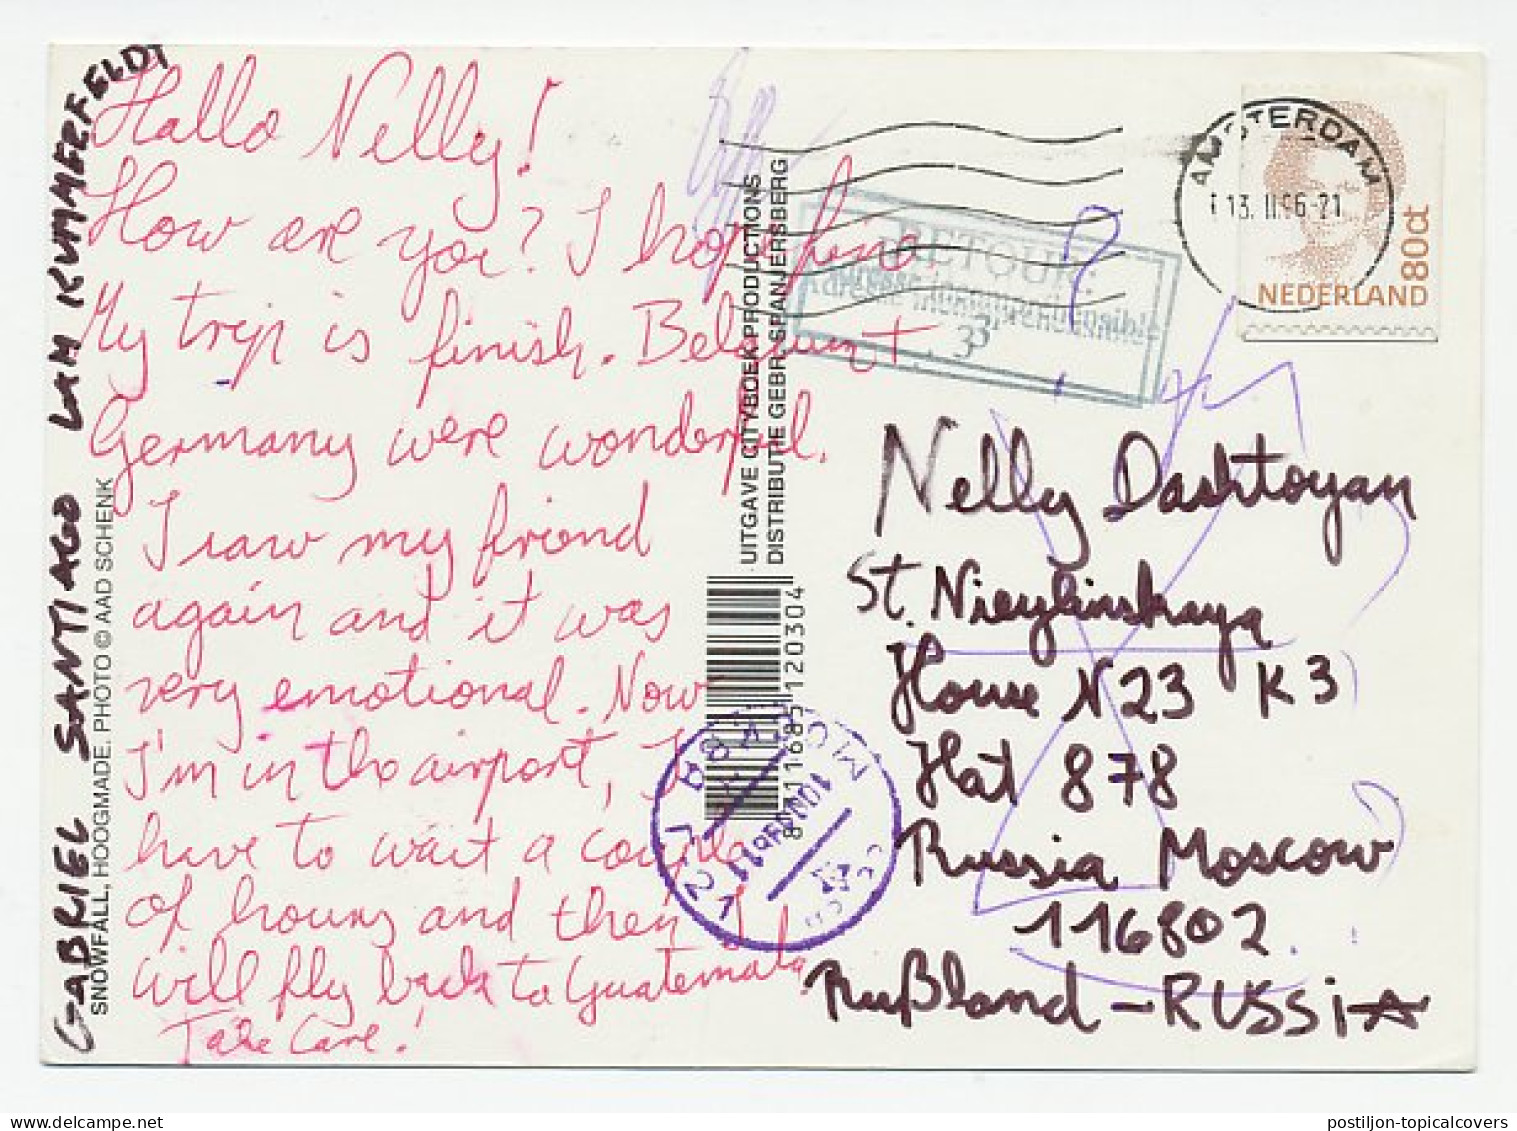 Hallo Nelly!
How are you? I hope fine
My trip is finish. Belgium +
Germany were wonderful.
I saw my friend
again and it was
very emotional. Now
I'm in the airport, I
have to wait a couple
of hours and then I
will fly back to Guatemala
Take Care!
GABRIEL SANTIAGO LAM KUMMERFELDT
SNOWFALL, HOOGMADE, PHOTO © AAD SCHENK
UITGAVE CITYBOEK PRODUCTIONS
DISTRIBUTIE GEBR. SPANJERSBERG
8 711685 120304
RETOUR:
Adresse incompréhensible
33
AMSTERDAM
13.II.96-21
80ct
NEDERLAND
Nelly Dashtoyan
St. Nieyhinskaya
House N23 K3
Flat 878
Russia Moscow
116802
Rußland - RUSSIA
МОСКВА
postiljon-topicalcovers